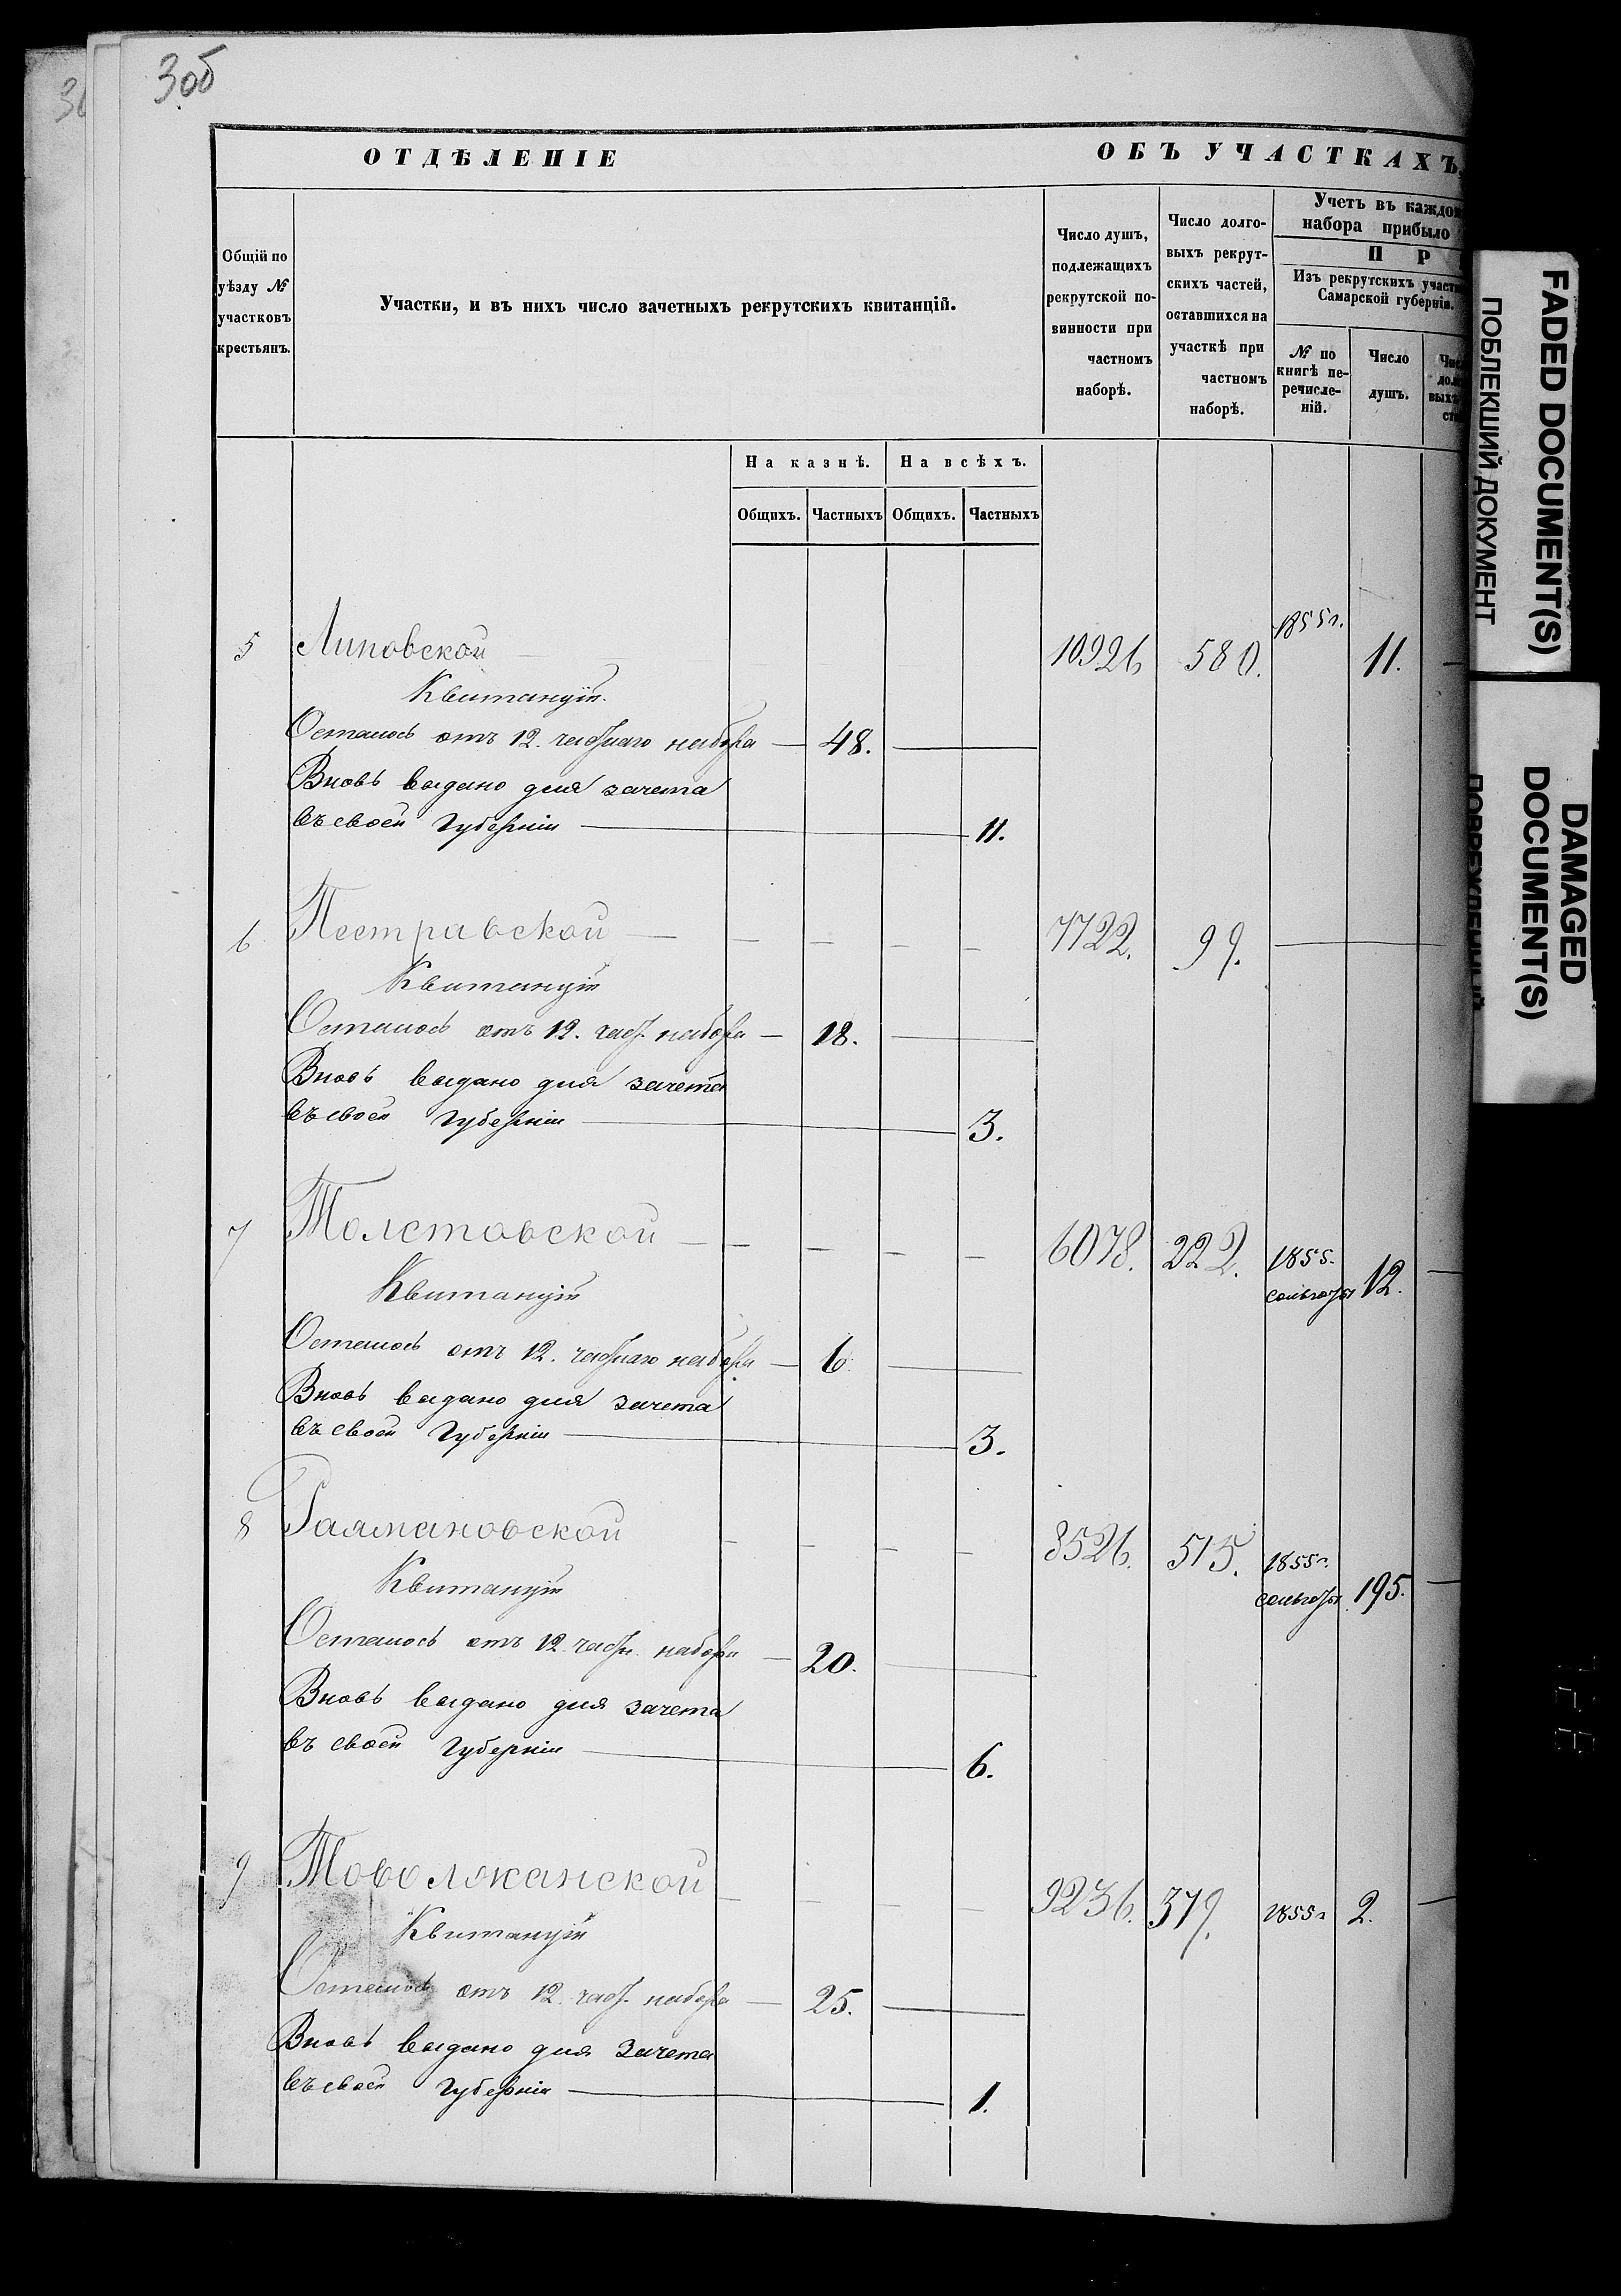 30б
ОТДѢЛЕНІЕ ОБЪ УЧАСТКАХЪ
Общій по уѣзду № участковъ крестьянъ.
Участки, и въ нихъ число зачетныхъ рекрутскихъ квитанцій.
Число душъ, подлежащихъ рекрутской повинности при частномъ наборѣ.
Число долговыхъ рекрутскихъ частей, оставшихся на участкѣ при частномъ наборѣ.
Учетъ въ каждом
набора прибыло
П Р
Изъ рекрутскихъ участк
Самарской губерніи.
№ по книгѣ перечисленій.
Число душъ.
На казнѣ. На всѣхъ.
Общихъ. Частныхъ Общихъ. Частныхъ
5 Липовской 10926 580. 1855 г. 11. —
Квитанцій.
Осталось отъ 12. частнаго набора — 48. —
Вновь выдано для зачета
въ своей Губерніи — 11.
6 Пестравской — — — — — 7722. 99. —
Квитанцій
Осталось отъ 12. част. набора — 18. —
Вновь выдано для зачета
въ своей Губерніи — 3.
7 Толстовской — — — — — 6078. 222. 1855. 12. —
Квитанцій
Осталось отъ 12. частнаго набора — 6. —
Вновь выдано для зачета
въ своей Губерніи — 3.
8 Рахмановской — — — — 8526. 515. 1855 г. 195. —
Квитанцій
Осталось отъ 12. частн. набора — 20. —
Вновь выдано для зачета
въ своей Губерніи — 6.
9 Товолжанской — — — — 9236. 379. 1855 г 2. —
Квитанцій
Осталось отъ 12. част. набора — 25. —
Вновь выдано для зачета
въ своей Губерніи — 1.
FADED DOCUMENT(S)
ПОБЛЕКШИЙ ДОКУМЕНТ
DAMAGED
DOCUMENT(S)